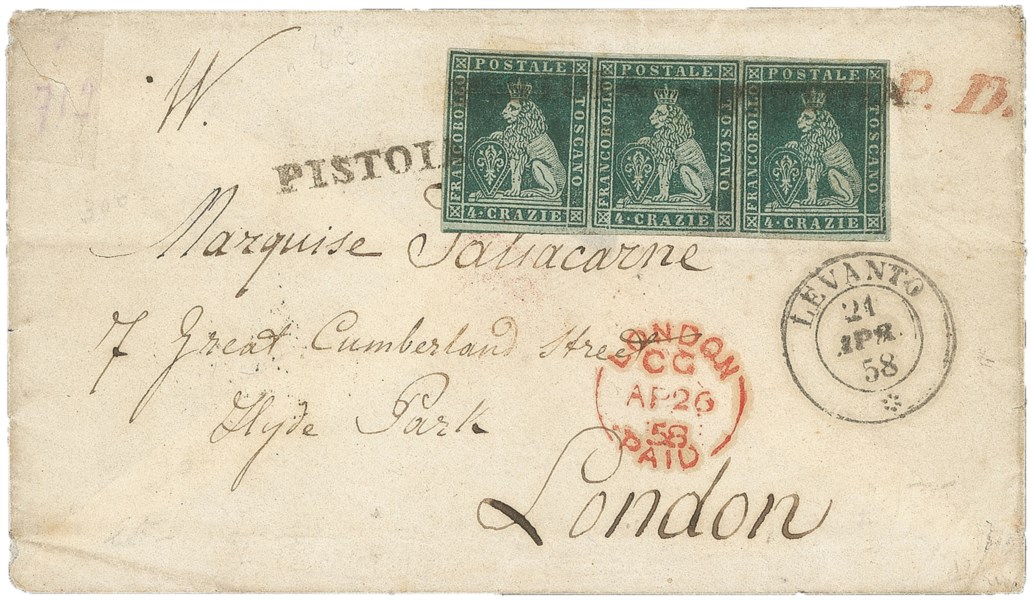 712
W.
300
PISTOI
P. D.
POSTALE
FRANCOBOLLO
TOSCANO
4 · CRAZIE
POSTALE
FRANCOBOLLO
TOSCANO
4 · CRAZIE
POSTALE
FRANCOBOLLO
TOSCANO
4 · CRAZIE
Marquise
7 Great Cumberland Street
Hyde Park
London
LEVANTO
21
APR.
58
LONDON
CG
AP 26
58
PAID